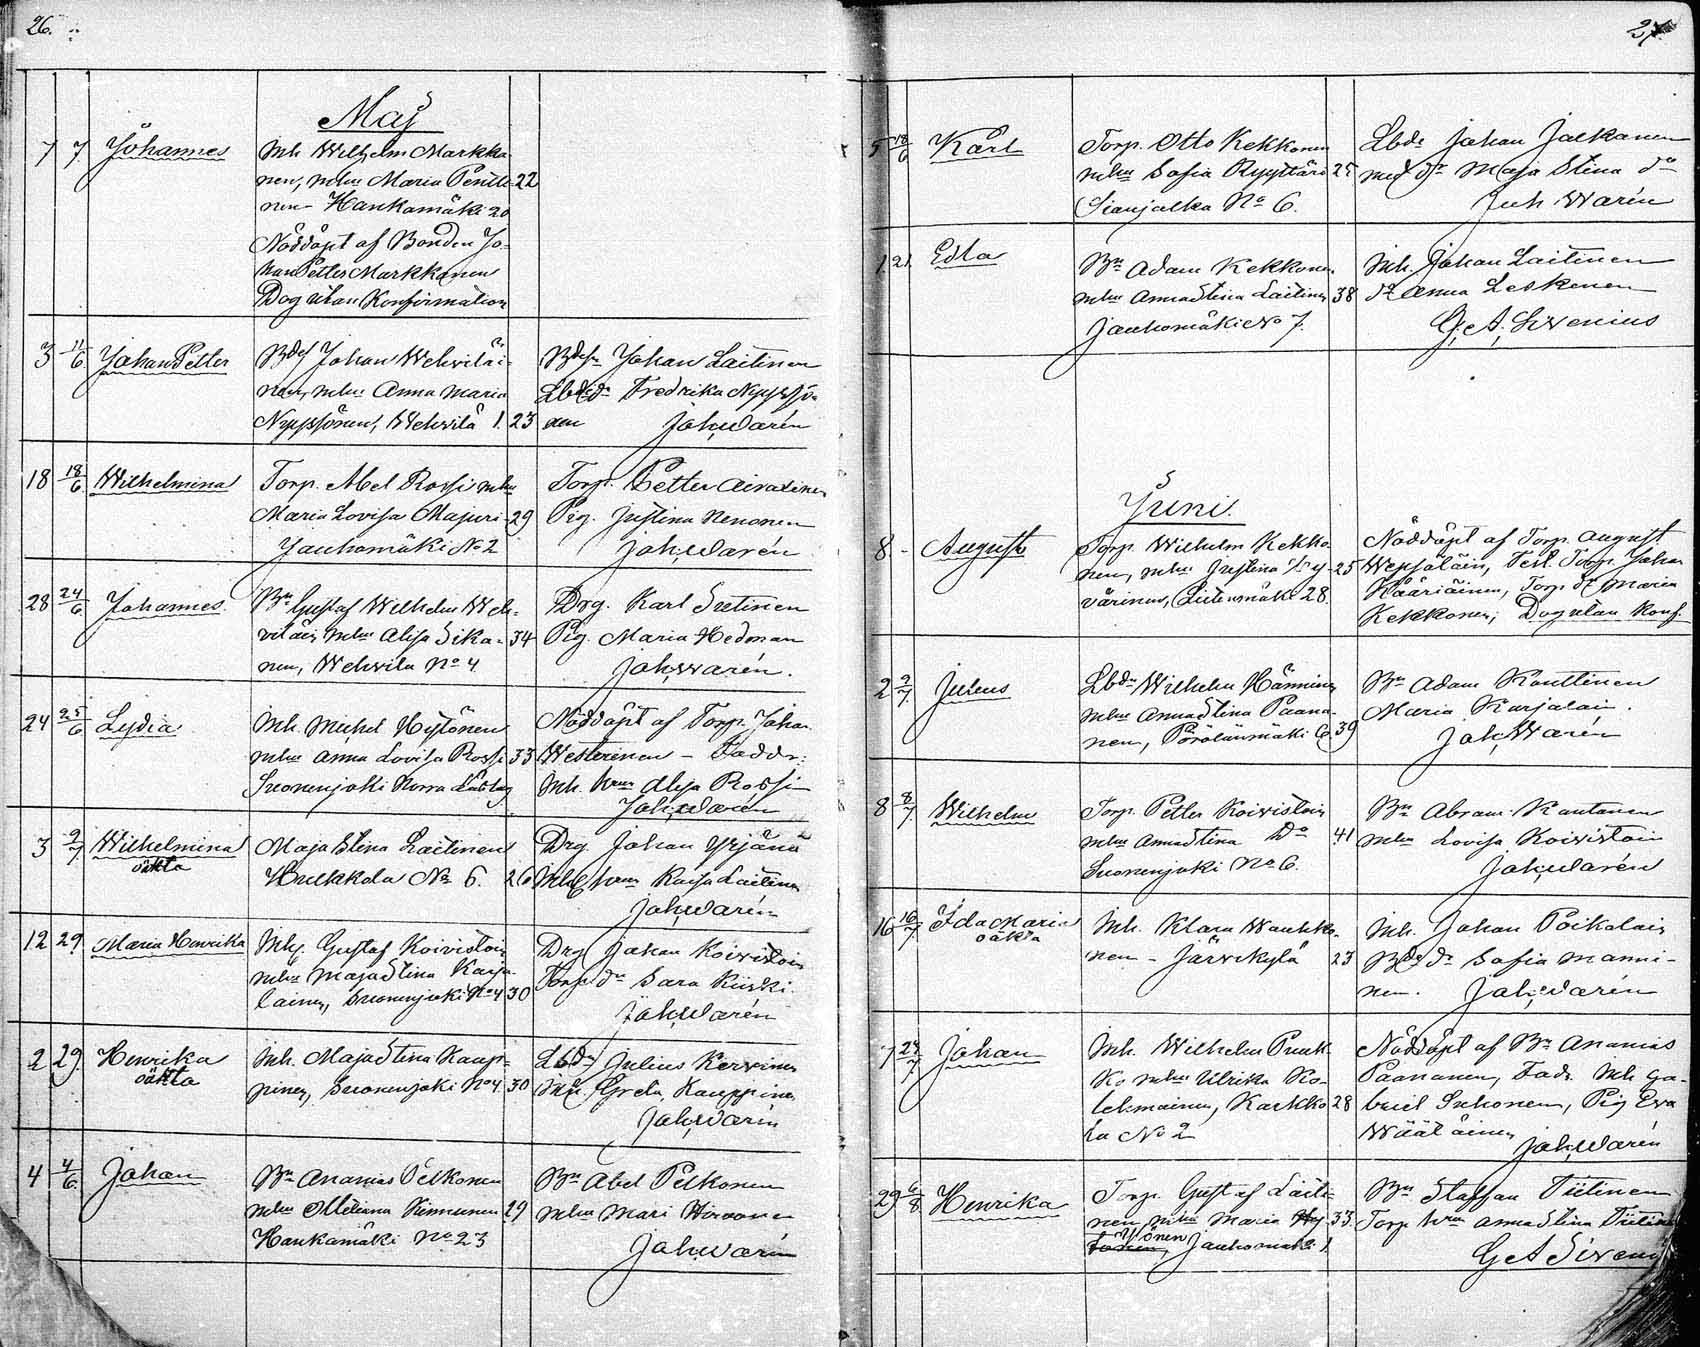 26.
Maj
7 7. Johannes
Inh. Wilhelm Markka-
nen, mhu Maria Pentti- 22
nen Hankamäki 20
Nöddöpt af Bonden Jo-
han Petter Markkanen
Dog utan Konfirmation
3 11/6 Johan Petter
Bdes Johan Wehviläi-
nen, mhu Anna Maria
Nyyssönen, Wehvilä 1. 23
Bdesn Johan Laitinen
Lbdsdr Fredrika Nyyssö-
nen Joh. Warén
18 18/6 Wilhelmina
Torp. Abel Rossi mhu
Maria Lovisa Majuri 29
Jauhomäki No 2
Torp. Petter
Pig. Justina Nenonen
Joh. Warén
28 24/6 Johannes.
Bn Gustaf Wilhelm Weh-
viläin, mhu Alisa Sika- 34
nen, Wehvila No 4
Drg. Karl Sutinen
Pig. Maria Hedman
Joh. Warén.
24 25/6 Lydia
Inh. Michel Hytönen
mhu Anna Lovisa Rossi 33
Suonenjoki Norra
Nöddöpt af Torp. Johan
Westerinen – Faddr:
Inh. hrun Alisa Rossi
Joh. Warén
3 2/7 Wilhelmina
oäkta
Maja Stina Laitinen
Hulkkola No 6. 26
Drg Johan Yrjänä
Inh. hrun Kaisa Laitinen
Joh. Warén
12 29. Maria Henrika
Inh. Gustaf Koivistoin
mhu Maja Stina Karja-
lainen, Suonenjoki No 4 30
Drg Johan Koivistoin
Torp. dr Sara Kiiski
Joh. Warén
2 29. Henrika
oäkta
Inh. Maja Stina Kaup-
pinen, Suonenjoki No 4. 30
Lbdn Julius Kervinen
Inh. Greta Kauppinen
Joh. Warén
4 4/6. Johan
Bn Ananias Pelkonen
mhu Kinnunen 29
Hankamäki No 23
Bn Abel Pelkonen
mhu Mari Hirvonen
Joh. Warén
27.
5 18/6 Karl
Torp. Otto Kekkonen
mhu Sofia Ryyttäri 25
Sianjalka No 6.
Lbdn Johan Jalkanen
med dr Maja Stina do
Joh Warén
1. 21. Edla
Bn Adam Kekkonen
mhu Anna Stina Laitinen 38
Jauhomäki No 7.
Inh. Johan Laitinen
dr Anna Leskinen
G. A. Sivenius
Juni.
8 - August
Torp. Wilhelm Kekko-
nen, mhu Justina 25
värinen, Lütenmäki 28.
Nöddöpt af Torp. August
Wepsäläin, Test. Torp. Johan
Kääriäinen, Torp. dr Maria
Kekkonen; Dog utan Konf.
2 2/7. Julius
Lbdn Wilhelm Hänninen
mhu Anna Stina Paana-
nen, Pörölänmäki 6. 39
Bn Adam Konttinen
Maria Karjalain.
Joh. Warén
8 8/7. Wilhelm
Torp. Petter Koivistoin
mhu Anna Stina do 41
Suonenjoki No 6.
Bn Abram Rautanen
mhu Lovisa Koivistoin
Joh. Warén
16 16/7. Ida Maria
oäkta
Inh. Klara Wauhko-
nen - Järvikylä 23
Inh. Johan Poikolain
Bdsdr Sofia Manni-
nen. Joh. Warén
7 23/7 Johan
Inh. Wilhelm Pruuk-
ko mhu Ulrika Ko-
lehmainen, Karkko- 28
la No 2
Nöddöpt af Bn Ananias
Paananen, Fadr. Inh. Ga-
briel Suhonen, Pig Eva
Wäätäinen Joh. Warén
29 6/8. Henrika
Torp. Gustaf Laiti-
nen, mhu Maria Hy- 33.
tönen, Jauhomäki 1.
Bn Staffan Tiitinen
Torp. hrun Anna Stina Tiitinen
G A Siveniu